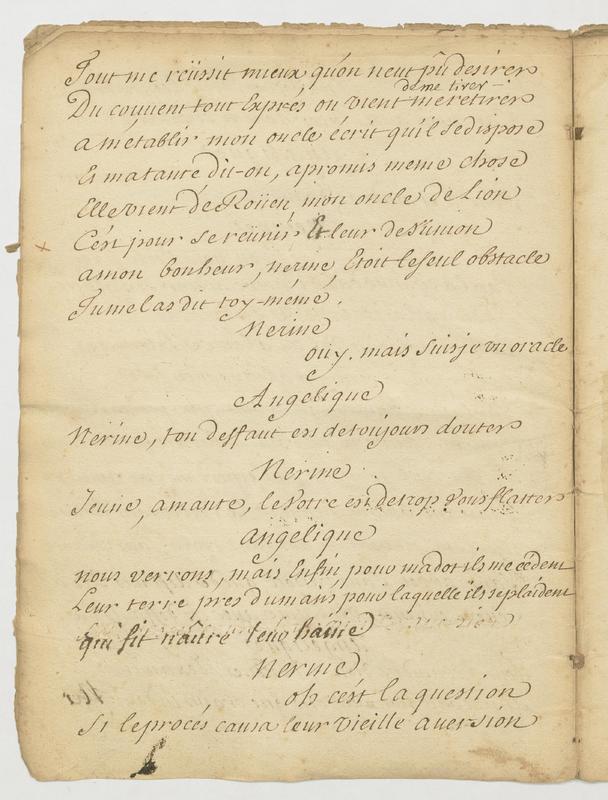 Tout me reüssit mieux qu'on n'eut pû desirer
de me tirer
Du couvent tout Exprés on vient me retirer
a m'etablir mon oncle écrit qu'il se dispose
Et ma tante dit-on, a promis meme chose
Elle vient de Roüen mon oncle de Lion
C'est pour se reünir Et leur desunion
a mon bonheur, nerine, Etoit le seul obstacle
Tu me las dit toy-méme.
Nerine
oüy. mais suis je un oracle
Angelique
Nerine, ton deffaut est de toujours douter
Nerine
Jeune, amante, le votre est de trop vous flatter
angelique
nous verrons, mais Enfin pour ma dot ils me cedent
Leur terre pres du mans pour laquelle ils se plaident
qui fit naître leur haine
Nerine
oh c'est la question
Si le procés causa leur vieille aversion